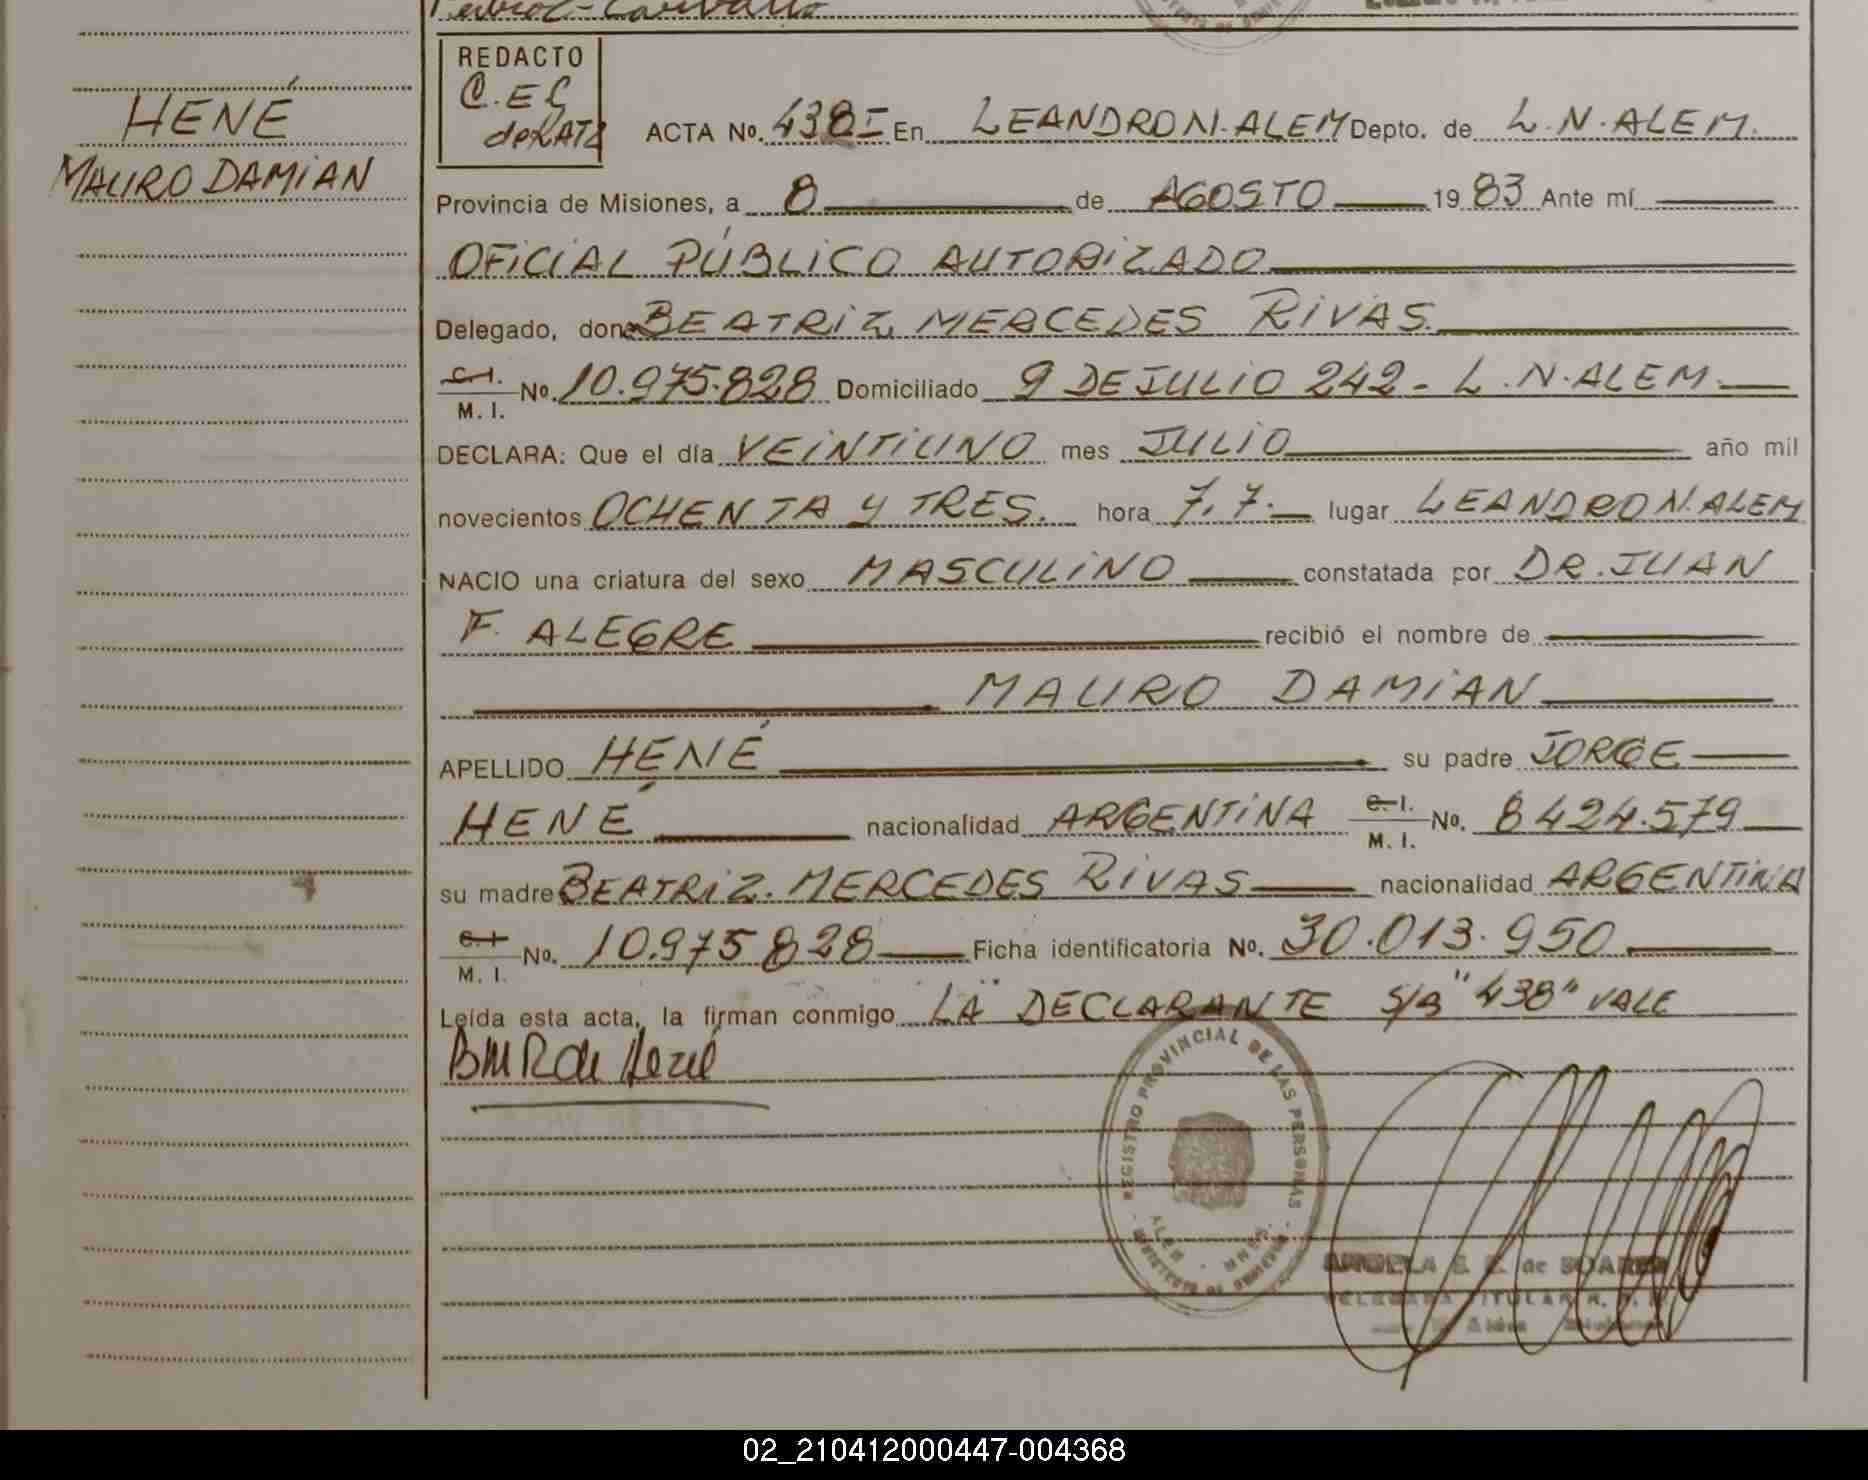 HENÉ
MAURO DAMIAN
REDACTO
C.EG
de RATZ
ACTA No. 438 I En LEANDRO N. ALEM Depto. de L.N. ALEM.
Provincia de Misiones, a 8 de AGOSTO 19 83 Ante mí
OFICIAL PÚBLICO AUTORIZADO
Delegado, don BEATRIZ MERCEDES RIVAS
C. I. M. I. No. 10.975.828 Domiciliado 9 DE JULIO 242 - L.N. ALEM.
DECLARA: Que el día VEINTIUNO mes JULIO año mil
novecientos OCHENTA Y TRES. hora 7.7. lugar LEANDRO N. ALEM
NACIO una criatura del sexo MASCULINO constatada por DR. JUAN
F. ALEGRE recibió el nombre de
MAURO DAMIAN
APELLIDO HENÉ su padre JORGE
HENÉ nacionalidad ARGENTINA C. I. M. I. No. 8424.579
su madre BEATRIZ. MERCEDES RIVAS nacionalidad ARGENTINA
C. I M. I. No. 10.975 828 Ficha identificatoria No. 30.013.950
Leída esta acta, la firman conmigo LA DECLARANTE S/B "438" VALE
BMR de Hené
REGISTRO PROVINCIAL DE LAS PERSONAS
ALEM - MNES.
MINISTERIO DE GOBIERNO
ANGELA E. de SOAREZ
DELEGADA TITULAR R.
02_210412000447-004368